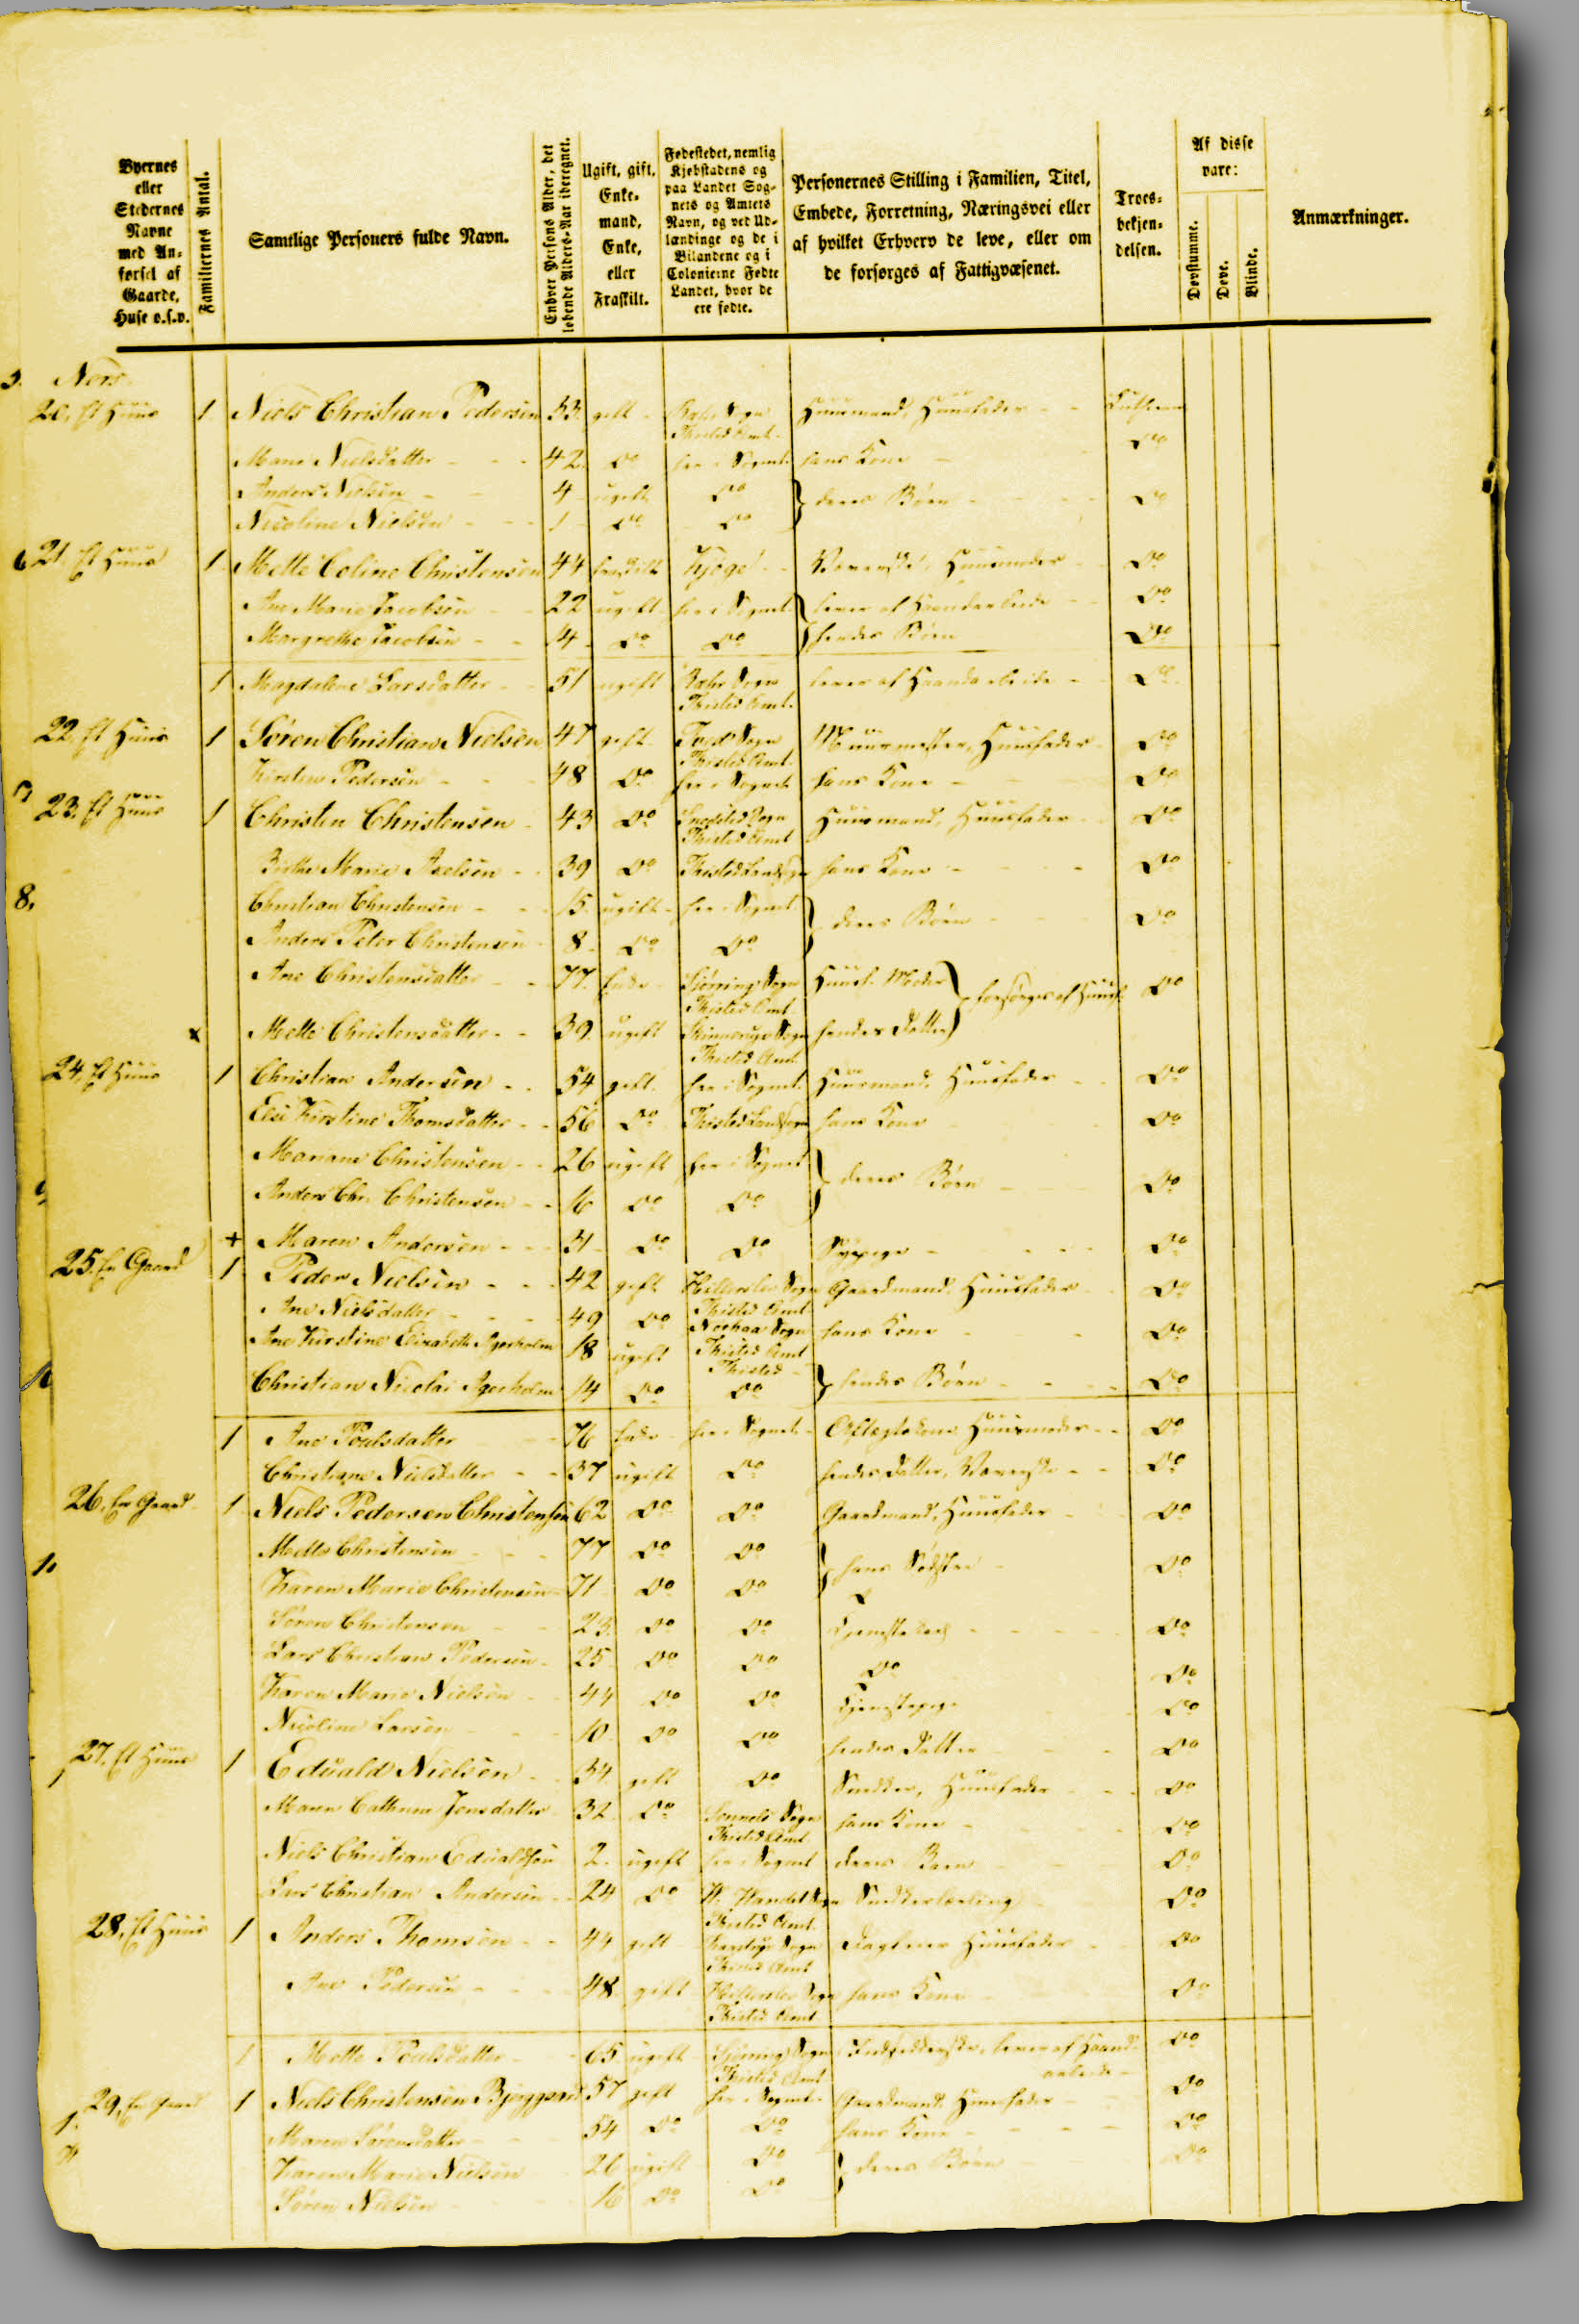 Byernes eller Stedernes Navne med Anførsel af Gaarde, Huse o.s.v.
Familiernes Antal.
Samtlige Personers fulde Navn.
Enhver Persons Alder, det løbende Alders-Aar iberegnet.
Ugift, gift, Enkemand, Enke, eller Fraskilt.
Fødestedet, nemlig Kjøbstadens og paa Landet Sognets og Amtets Navn, og ved Udlændinge og de i Bilandene og i Colonierne Fødte Landet, hvor de ere fødte.
Personernes Stilling i Familien, Titel, Embede, Forretning, Næringsvei eller af hvilket Erhverv de leve, eller om de forsørges af Fattigvæsenet.
Troesbekjendelsen.
Af disse vare:
Døvstumme.
Døve.
Blinde.
Anmærkninger.
Nors
20. Et Huus 1 Niels Christian Pedersen 53. gift Sogn Thisted Amt. Huusmand, Huusfader Luthersk
Mane Nielsdatter 42. Do her i Sognet hans Kone Do
Anders Nielsen 4 ugift Do } deres Børn Do
Nicoline Nielsen 1 Do Do
21. Et Huus 1 Mette Celine Christensen 44 fraskilt Kjøge Væverske, Huusmoder Do
Ane Marie Jacobsen 22 ugift her i Sognet } lever af Haandarbeide Do
Margrethe Jacobsen 14 Do Do } hendes Børn Do
1 Magdalene Larsdatter 51 ugift Sogn Thisted Amt. lever af Haandarbeide Do
22. Et Huus 1 Søren Christian Nielsen 47 gift Sogn Thisted Amt. Muurmester, Huusfader Do
Kirsten Pedersen 48 Do her i Sognet hans Kone Do
23. Et Huus 1 Christen Christensen 43 Do Snedsted Sogn Thisted Amt Huusmand, Huusfader Do
Birthe Marie Axelsen 39 Do Thisted Landsogn hans Kone Do
8.
Christian Christensen 15. ugift her i Sognet } deres Børn Do
Anders Peter Christensen 8 Do Do
Ane Christensdatter 77. Enke Sjørring Sogn Thisted Amt. Huusf. Moder } forsørges af Huusf. Do
x Mette Christensdatter 39. ugift Skinnerup Sogn Thisted Amt hendes Datter }
24. Et Huus 1 Christian Andersen 54 gift her i Sognet Huusmand, Huusfader Do
Else Kirstine Thomsdatter 56 Do Thisted Landsogn hans Kone Do
Mariane Christensen 26 ugift her i Sognet } deres Børn Do
Anders Chr. Christensen 16 Do Do
+ Maren Andersen 31 Do Do Sypige Do
25. En Gaard 1 Peder Nielsen 42 gift Hillerslev Sogn Thisted Amt Gaardmand, Huusfader Do
Ane Nielsdatter 49 Do Nørhaa Sogn Thisted Amt hans Kone Do
Ane Kirstine Elisabeth Agerholm 18 ugift Thisted } hendes Børn Do
Christian Nicolai Agerholm 14 Do Do
1 Ane Poulsdatter 76 Enke her i Sognet Aftægtskone, Huusmoder Do
Christiane Nielsdatter 37 ugift Do hendes Datter, Væverske Do
26. En Gaard 1 Niels Pedersen Christensen 62 Do Do Gaardmand, Huusfader Do
Mette Christensen 77 Do Do } hans Søstre Do
Karen Marie Christensen 71 Do Do
Søren Christensen 23. Do Do Tjenestekarl Do
Lars Christian Pedersen 25 Do Do Do Do
Karen Marie Nielsen 44 Do Do Tjenestepige Do
Nicoline Larsen 10. Do Do hendes Datter Do
27. Et Huus 1 Eduald Nielsen 34 gift Do Snedker, Huusfader Do
Maren Cathrine Jensdatter 32 Do Sennels Sogn Thisted Amt hans Kone Do
Niels Christian Edualdsen 2. ugift her i Sognet deres Barn Do
Lars Christian Andersen 24 Do V. Vandet Sogn Thisted Amt. Snedkerlærling Do
28. Et Huus 1 Anders Thomsen 44 gift Kaastrup Sogn Thisted Amt Dagleier, Huusfader Do
Ane Pedersen 48. gift Hillerslev Sogn Thisted Amt hans Kone Do
1 Mette Poulsdatter 65. ugift Sjørring Sogn Thisted Amt Indsidderske, lever af Haandarbeide Do
29. En Gaard 1 Niels Christensen Bjerggaard 57 gift her i Sognet Gaardmand, Huusfader Do
Maren Sørensdatter 54 Do Do hans Kone Do
Karen Marie Nielsen 26 ugift Do } deres Børn Do
Søren Nielsen 16 Do Do